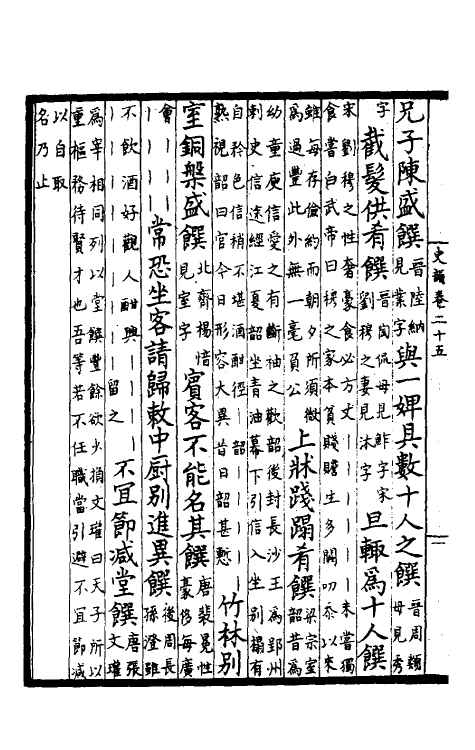 兄子陳盛饌晉陸納見業字與一婢具數十人之饌晉周顗母見秀
字截髮供肴饌晉陶侃母見鮓字宋劉穆之妻見沐字旦輒爲十人饌
宋劉穆之性奢豪食必方丈丨丨丨丨丨未嘗獨
食嘗白武帝曰穆之家本貧賤贍生多闕叨忝以來
雖每存儉約而朝夕所須微
爲過豐此外無一毫負公
上牀踐蹋肴饌梁宗室韶昔爲
幼童庾信愛之有斷袖之歡韶後封長沙王爲郢州
刺史信途經江夏韶坐青油幕下引信入坐别榻有
自矜色信稍不堪酒酣徑丨韶丨丨丨丨
熟視韶曰官今日形容大異昔日韶甚慙
竹林别
室銅槃盛饌北齊楊愔見室字賓客不能名其饌唐裴冕性豪侈每廣
會丨丨丨丨丨丨丨常恐坐客請歸敕中厨别進異饌後周長孫澄雖
不飲酒好觀人酣興丨丨丨丨
丨丨丨丨丨丨丨留之
不冝節減堂饌唐張文瓘
爲宰相同列以堂饌豐餘欲少損文瓘曰天子所以
重樞務待賢才也吾等若不任職當引避不冝節減
以自取
名乃止
史卷二十五